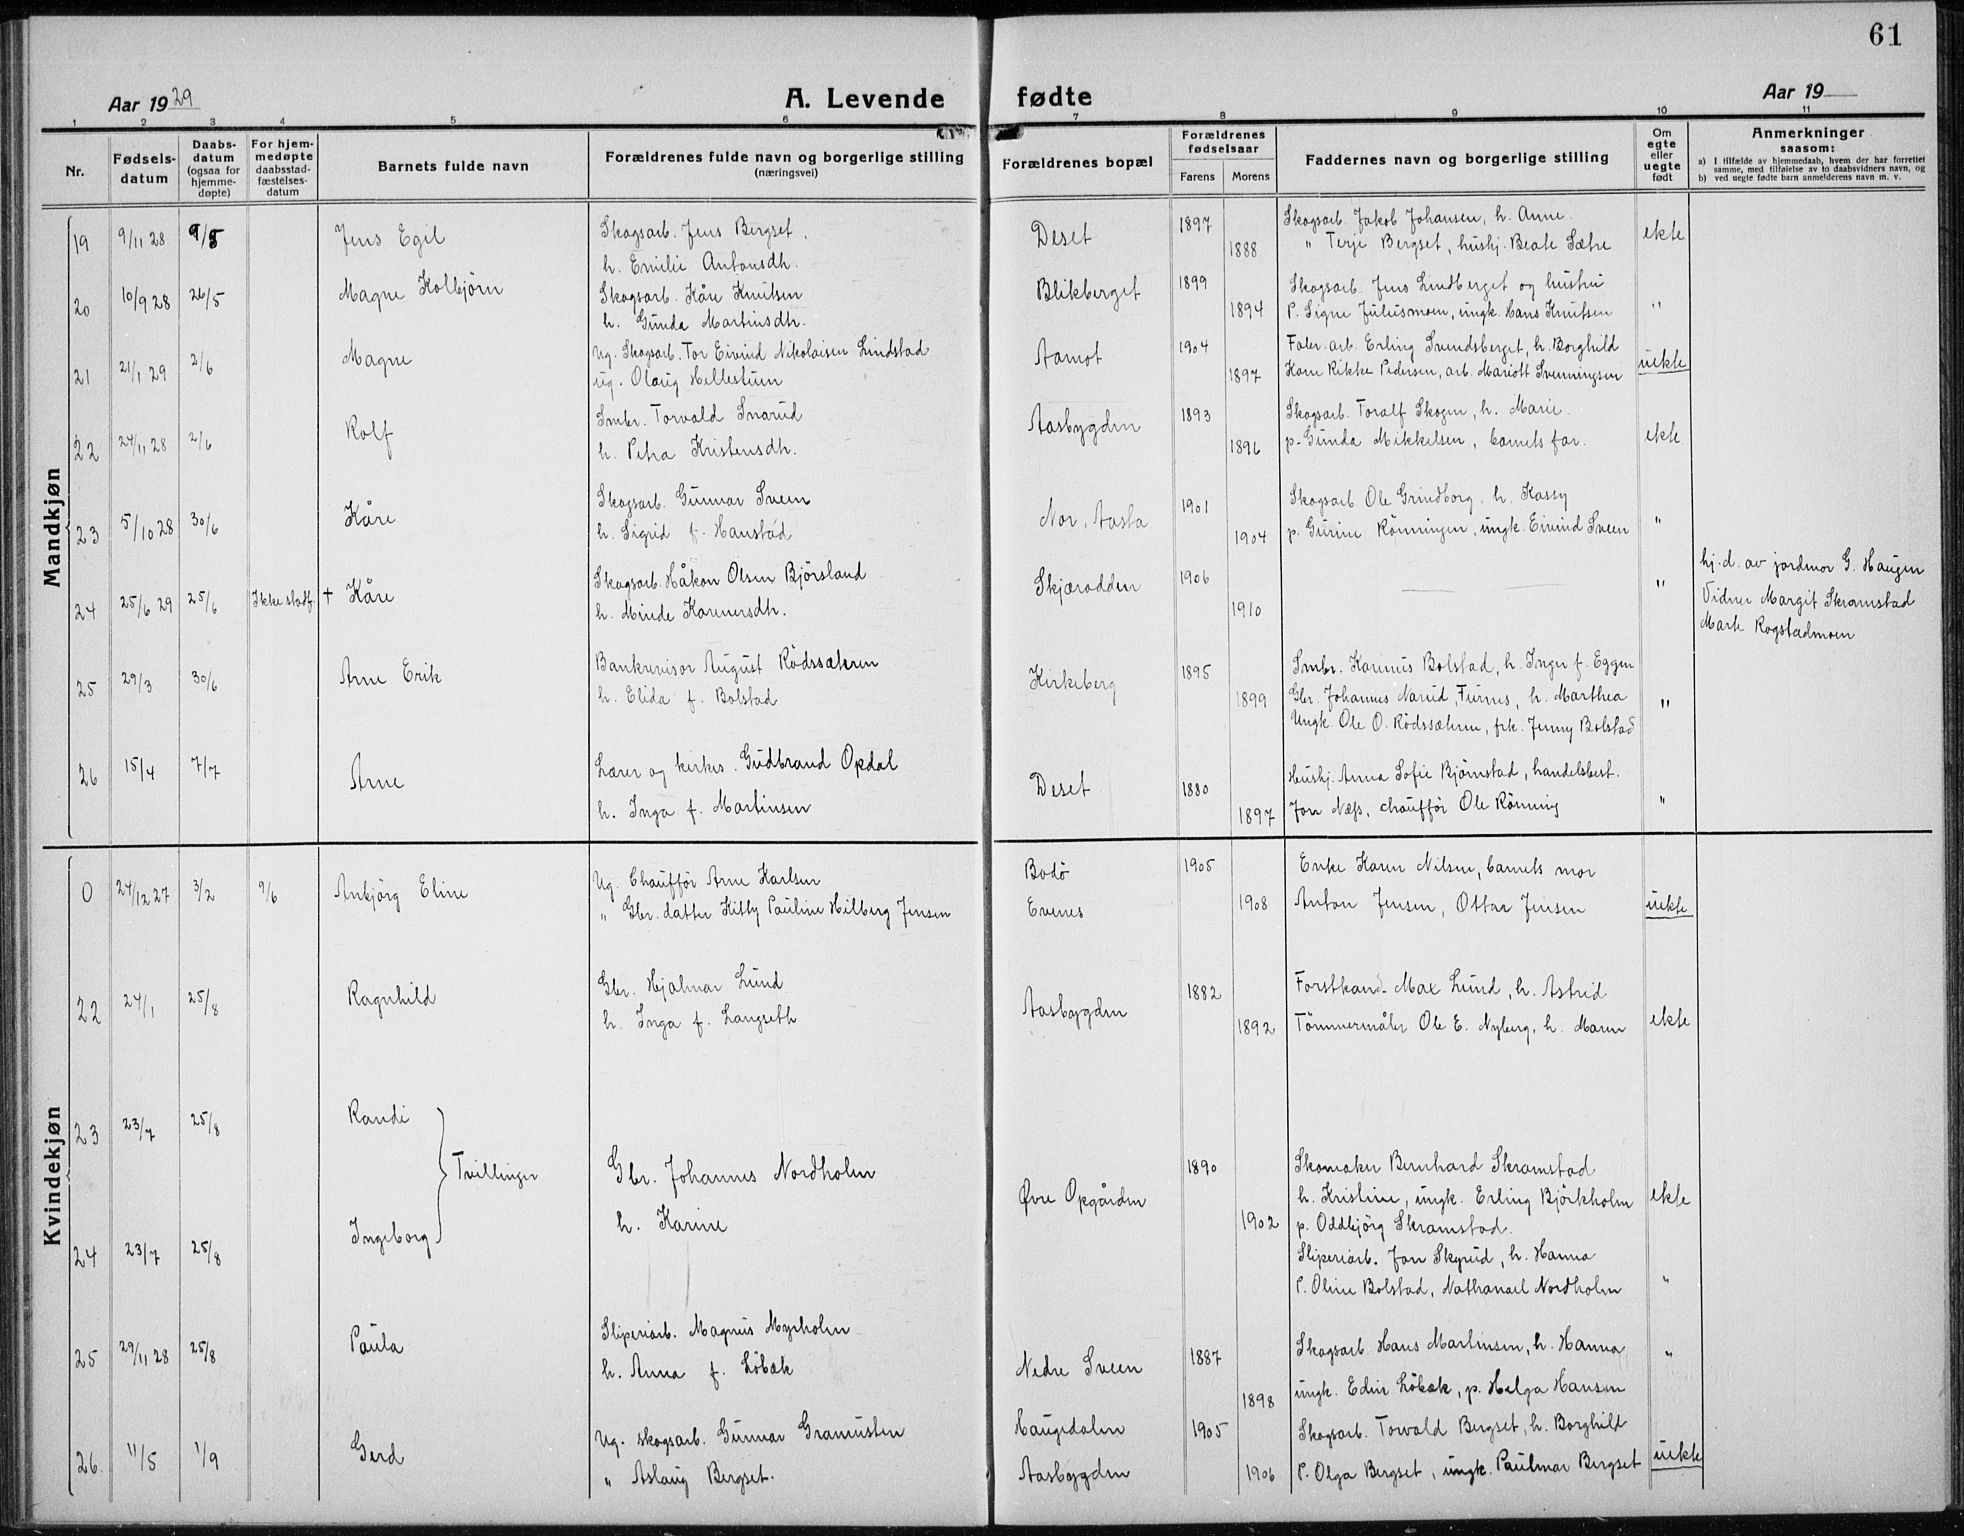 61
Aar 1929
A. Levende fødte
Aar 19
1 2 3 4 5 6 7 8 9 10 11
Nr.
Fødsels-
datum
Daabs-
datum
(ogsaa for
hjemme-
døpte)
For hjem-
medøpte
daabsstad-
fæstelses-
datum
Barnets fulde navn
Forældrenes fulde navn og borgerlige stilling
(næringsvei)
Forældrenes bopæl
Forældrenes
fødselsaar
Farens Morens
Faddernes navn og borgerlige stilling
Om
egte
eller
uegte
født
Anmerkninger
saasom:
a) I tilfælde av hjemmedaab, hvem der har forrettet
samme, med tilføielse av to daabsvidners navn, og
b) ved uegte fødte barn anmelderens navn m. v.
Mandkjøn
19 9/11 28 9/5 Jens Egil
Skogsarb. Jens Bergset.
h. Emilie Antonsdh.
Deset 1897 1888
Skogsarb. Jakob Johansen, h. Anne.
" Terje Bergset, hushj. Beate Sætre
ekte
20 10/9 28 26/5 Magne Kolbjörn
Skogsarb. Kåre Knutsen
h. Gunda Martinsdh.
Blikberget 1899 1894
Skogsarb. Jens Lindberget og hustru
P. Signe Juliusmoen, ungk. Hans Knutsen
"
21 21/1 29 2/6 Magne
Ug. Skogsarb. Tor Eivind Nikolaisen Lindstad
ug. Olaug Hellestuen
Aamot 1904 1897
Faler. arb. Erling Svendsberget, h. Borghild
Kone Rikke Pedersen, arb. Mariott Svenningsen
uekte
22 24/11 28 2/6 Rolf
Smbr. Torvald Snarud
h. Petra Kristensdh.
Aasbygden 1893 1896
Skogsarb. Toralf Skogen, h. Marie.
p. Gunda Mikkelsen, barnets far.
ekte
23 5/10 28 30/6 Kåre
Skogsarb. Gunnar Sveen
h. Sigrid f. Hanstad
Nor. Aasta 1901 1904
Skogsarb Ole Grindborg. h. Kassy
p. Gurine Rönningen, ungk. Eivind Sveen
"
24 25/6 29 25/6 Ikke stadf. † Kåre
Skogsarb. Håkon Olsen Björsland
h. Minda Karenersdh.
Skjærodden 1906 1910
"
hj.d. av jordmor G. Haugen
Vidner Margit Skramstad
Marte Rogstadmoen
25 29/3 30/6 Arne Erik
Bankrevisor August Rödssæteren
h. Elida f. Bolstad
Kirkeberg 1895 1899
Smbr. Karinus Bolstad, h. Inger f. Eggen
Gbr. Johannes Narud, Furnes, h. Marthea
Ungk. Ole O. Rödssæteren, frk. Jenny Bolstad
"
26 15/4 7/7 Arne
Lærer og kirkes. Gudbrand Opdal
h. Inga f. Martinsen
Deset 1880 1897
Hushj. Anna Sofie Bjørnstad, handelsbest.
Jon Næss, chaufför Ole Rönning
"
Kvindekjøn
0 24/12 27 3/2 9/6 Anbjörg Eline
Ug. Chaufför Arne Karlsen
" Gbr. datter Kitty Pauline Hilberg Jensen
Bodö
Evenes
1905 1908
Enke Karen Nilsen, barnets mor
Anton Jensen, Ottar Jensen
uekte
22 24/1 25/8 Ragnhild
Gbr. Hjalmar Lund
h. Inga f. Langseth
Aasbygden 1882 1892
Forstkand. Max Lund, h. Astrid
Tömmermåler Ole E. Nyberg, h. Maren
ekte
23 23/7 25/8 Randi
Tvillinger
Gbr. Johannes Nordholen
h. Karine
Øvre Opgården 1890 1902
Skomaker Bernhard Skramstad
h. Kristine, ungk. Erling Björkholen
p. Oddbjörg Skramstad.
ekte
24 23/7 25/8 Ingeborg
Sliperiarb. Jon Skyrud, h. Hanna
P. Oline Bolstad, Nathanael Nordholen
"
25 29/11 28 25/8 Paula
Sliperiarb. Magnus Myrholen
h. Anna f. Löbæk
Nedre Sveen 1887 1898
Skogsarb. Hans Martinsen, h. Hanna
ungk. Edin Löbæk, p. Helga Hansen
"
26 11/5 1/9 Gerd
Ug. skogsarb. Gunnar Gramusten
" Aslaug Bergset.
Haugedalen
Aasbygden
1905 1906
Skogsarb. Torvald Bergset, h. Borghild
P. Olga Bergset, ungk. Paulmar Bergset
uekte